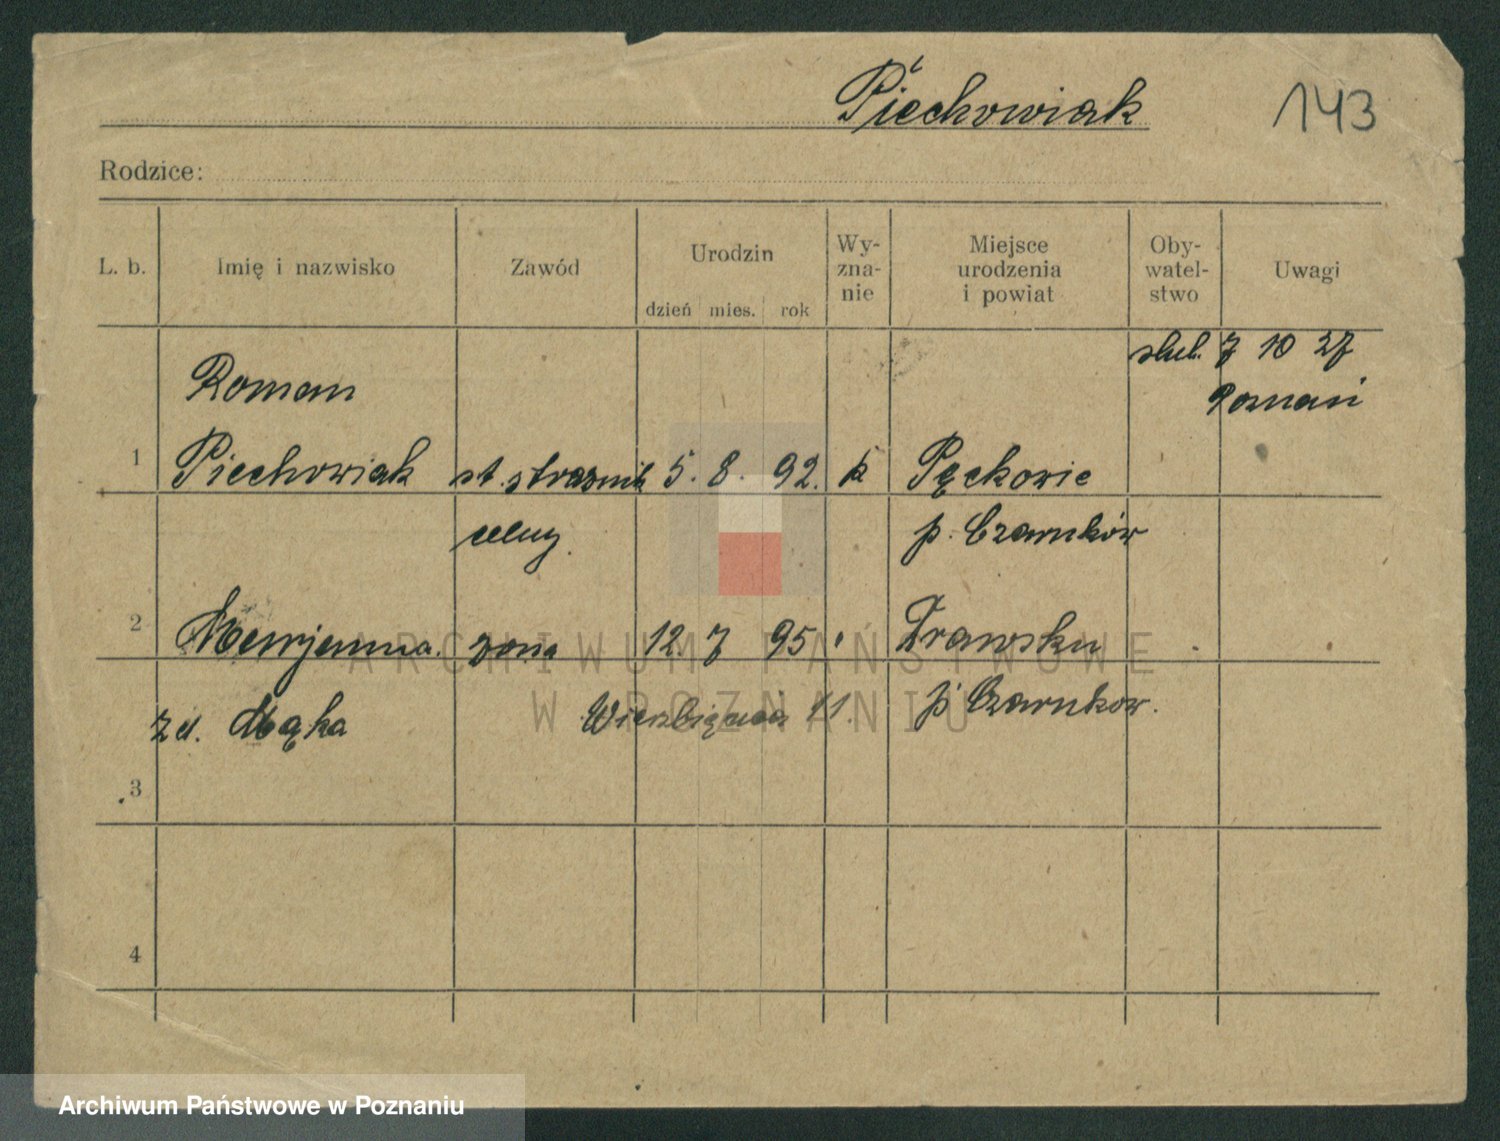 Piechowiak
143
Rodzice:
L. b. Imię i nazwisko Zawód Urodzin dzień mies. rok Wy-zna-nie Miejsce urodzenia i powiat Oby-watel-stwo Uwagi
slub. 7 10 27
Poznań
Roman
1 Piechowiak st. strażnik 5. 8. 92. k Pęckowie
celny. p. Czarnków
2 żona 12. 7 95 "
zd. Mąka p. Czarnków.
3
4
ARCHIWUM PAŃSTWOWE
W POZNANIU
Archiwum Państwowe w Poznaniu